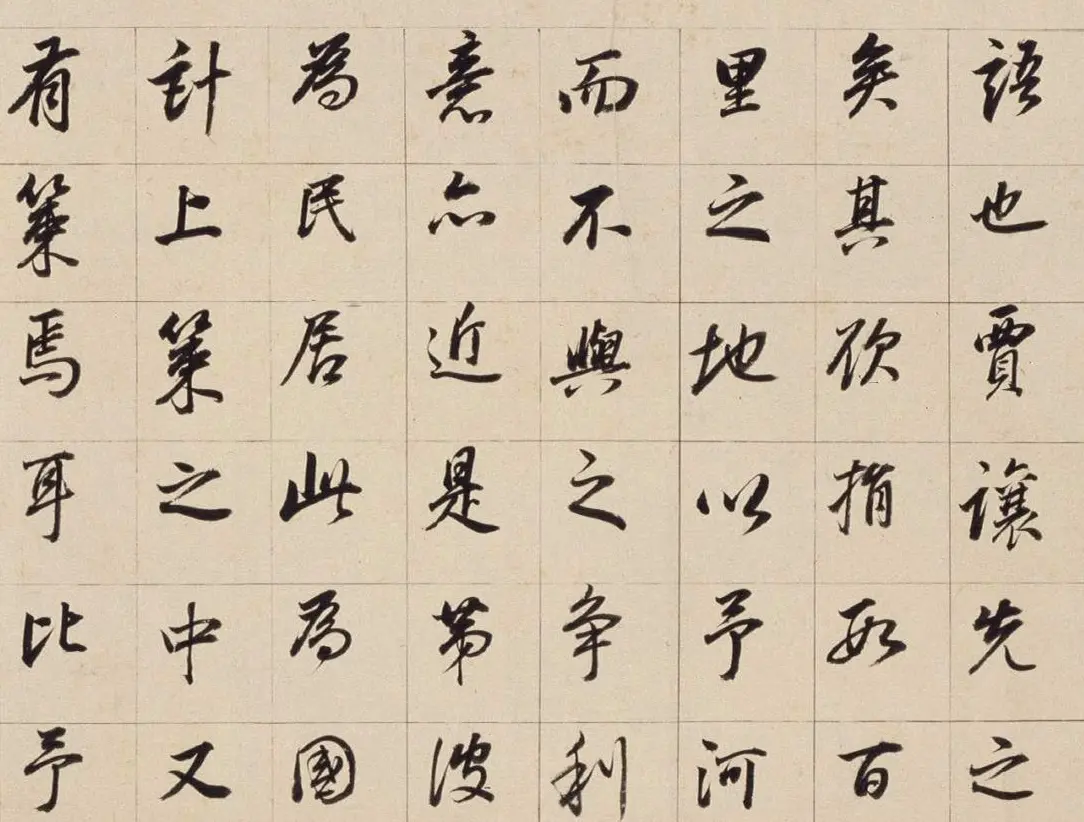 語也賈讓先之
矣其欲捐數百
里之地以予河
而不與之爭利
意亦近是第彼
為民居此為國
計上策之中又
有策焉耳比予